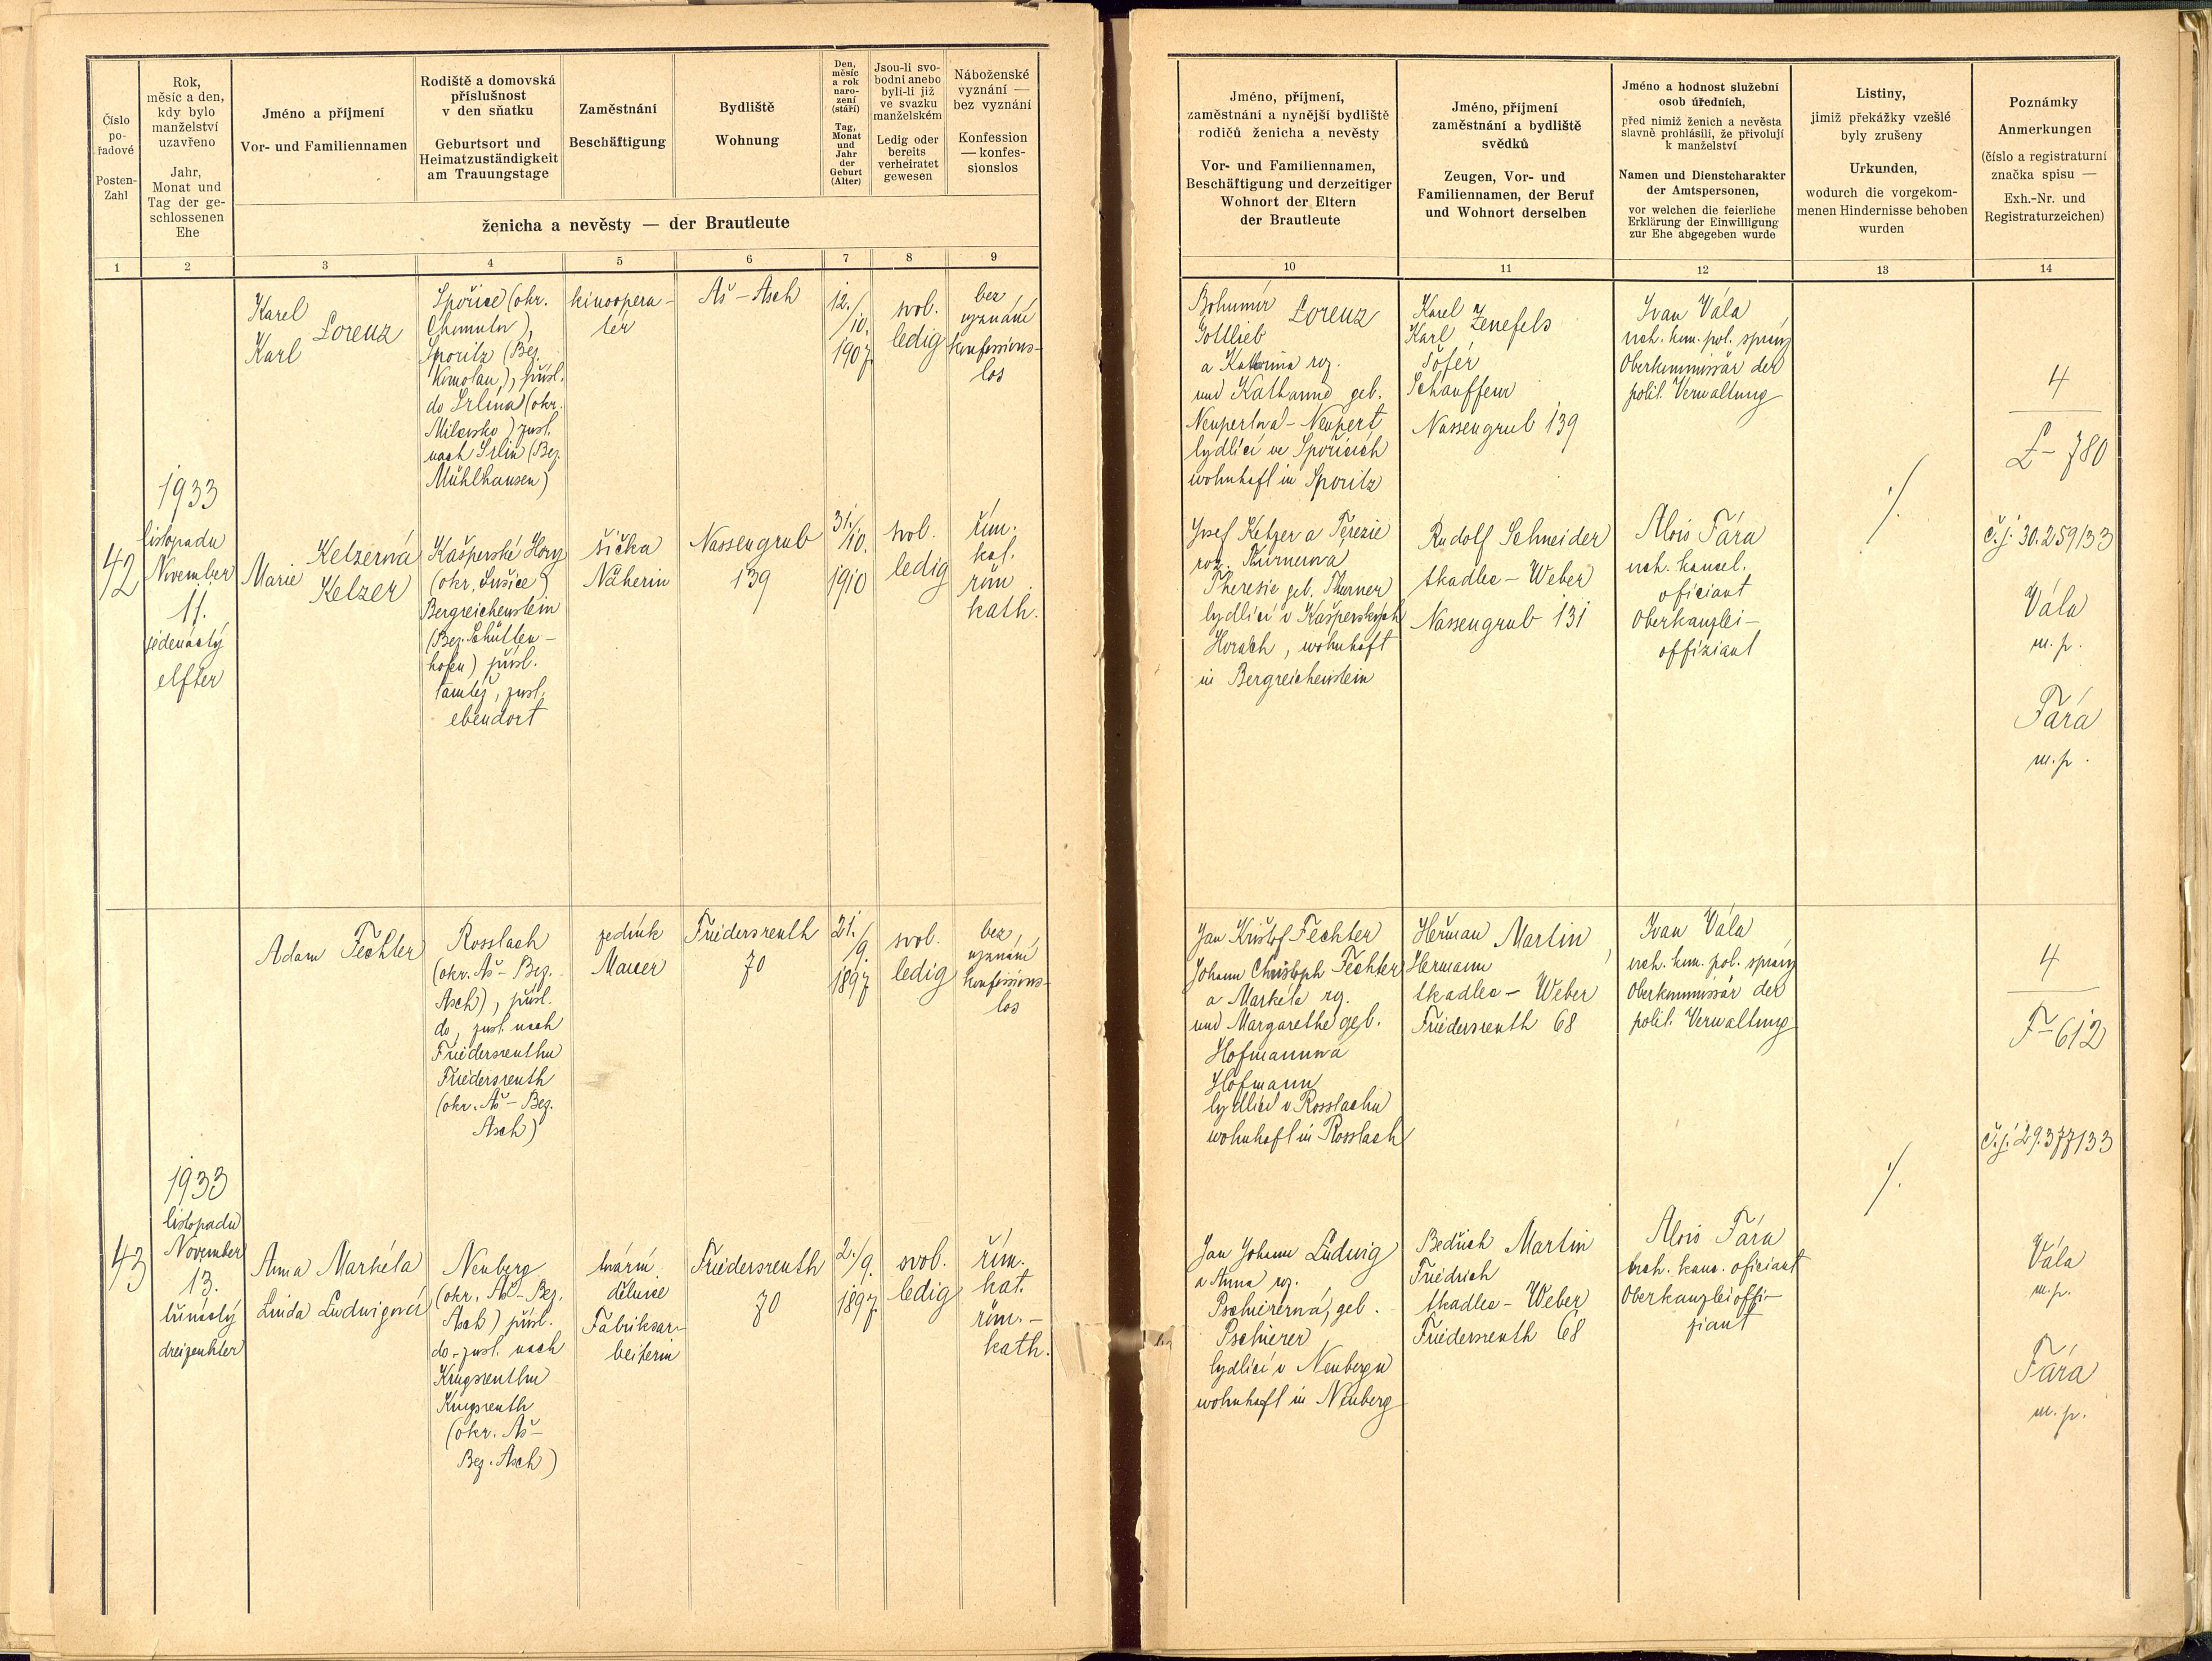 Číslo
po-
řadové
Posten-
Zahl
Rok,
měsíc a den,
kdy bylo
manželství
uzavřeno
Jahr,
Monat und
Tag der ge-
schlossenen
Ehe
Jméno a příjmení
Vor- und Familiennamen
Rodiště a domovská
příslušnost
v den sňatku
Geburtsort und
Heimatzuständigkeit
am Trauungstage
Zaměstnání
Beschäftigung
Bydliště
Wohnung
Den,
měsíc
a rok
naro-
zení
(stáří)
Tag,
Monat
und
Jahr
der
Geburt
(Alter)
Jsou-li svo-
bodní anebo
byli-li již
ve svazku
manželském
Ledig oder
bereits
verheiratet
gewesen
Náboženské
vyznání —
bez vyznání
Konfession
— konfes-
sionslos
ženicha a nevěsty — der Brautleute
1 2 3 4 5 6 7 8 9
Jméno, příjmení,
zaměstnání a nynější bydliště
rodičů ženicha a nevěsty
Vor- und Familiennamen,
Beschäftigung und derzeitiger
Wohnort der Eltern
der Brautleute
Jméno, příjmení
zaměstnání a bydliště
svědků
Zeugen, Vor- und
Familiennamen, der Beruf
und Wohnort derselben
Jméno a hodnost služební
osob úředních,
před nimiž ženich a nevěsta
slavně prohlásili, že přivolují
k manželství
Namen und Dienstcharakter
der Amtspersonen,
vor welchen die feierliche
Erklärung der Einwilligung
zur Ehe abgegeben wurde
Listiny,
jimiž překážky vzešlé
byly zrušeny
Urkunden,
wodurch die vorgekom-
menen Hindernisse behoben
wurden
Poznámky
Anmerkungen
(číslo a registraturní
značka spisu —
Exh.-Nr. und
Registraturzeichen)
10 11 12 13 14
42
1933
listopadu
November
11.
jedenáctý
elfter
Karel
Karl
Lorenz
Spořice (okr.
Chomutov),
Sporitz (Bez.
Komotau), přísl.
do Srlína (okr.
Milevsko) zust.
nach Srlin (Bez.
Mühlhausen)
kinoopera-
tér
Aš - Asch
12./
10.
1907
svob.
ledig
bez
vyznání
konfessions-
los
Bohumír
Gottlieb
Lorenz
a Kateřina roz.
und Katharina geb.
Neupertová - Neupert
bydlící ve Spořicích
wohnhaft in Sporitz
Karel
Karl
Zenefels
Šofér
Schauffeur
Nassengrub 139
Ivan Vála
vrch. kom. pol. správy
Oberkommissär der
polit. Verwaltung
4
L - 780
Marie
Kelzerová
Kelzer
Kašperské Hory
(okr. Sušice)
Bergreichenstein
(Bez. Schütten-
hofen) přísl.
tamtéž, zust.
ebendort
šička
Näherin
Nassengrub
139
31./
10.
1910
svob.
ledig
řím.
kat.
röm
kath.
Josef Kelzer a Terezie
roz. Turnerová
Theresie geb. Thurner
bydlící v Kašperských
Horách, wohnhaft
in Bergreichenstein
Rudolf Schneider
tkadlec - Weber
Nassengrub 131
Alois Fára
vrch. kancel.
oficiant
Oberkanzlei-
offiziant
./.
č.j. 30.259/33
Vála
m. p.
Fára
m. p.
43
1933
listopadu
November
13.
třináctý
dreizenhter
Adam Fechter
Rosslach
(okr. Aš - Bez.
Asch), přísl.
do, zust. nach
Friedersreuthu
Friedersreuth
(okr. Aš - Bez.
Asch)
zedník
Mauer
Friedersreuth
70
21./
9.
1897
svob.
ledig
bez
vyznání
konfessions-
los
Jan Kristof Fechter
Johann Christoph Fechter
a Markéta roz.
und Margarethe geb.
Hofmannová
Hofmann
bydlící v Rosslachu
wohnhaft in Rosslach
Heřman Martin
Hermann
tkadlec - Weber
Friedersreuth 68
Ivan Vála
vrch. kom. pol. správy
Oberkommissär der
polit. Verwaltung
4
F - 612
Anna Markéta
Linda Ludwigová
Neuberg
(okr. Aš - Bez.
Asch) přísl.
do - zust. nach
Krugsreuthu
Krugsreuth
(okr. Aš -
Bez. Asch)
tovární
dělnice
Fabriksar-
beiterin
Friedersreuth
70
2./
9.
1897
svob.
ledig
řím.
kat.
röm. -
kath.
Jan Johann Ludwig
a Anna roz.
Pschiererová, geb.
Pschierer
bydlící v Neubergu
wohnhaft in Neuberg
Bedřich Martin
Friedrich
tkadlec - Weber
Friedersreuth 68
Alois Fára
vrch. kanc. oficiant
Oberkanzleioffi-
ziant
./.
č.j. 29.377/33
Vála
m. p.
Fára
m. p.